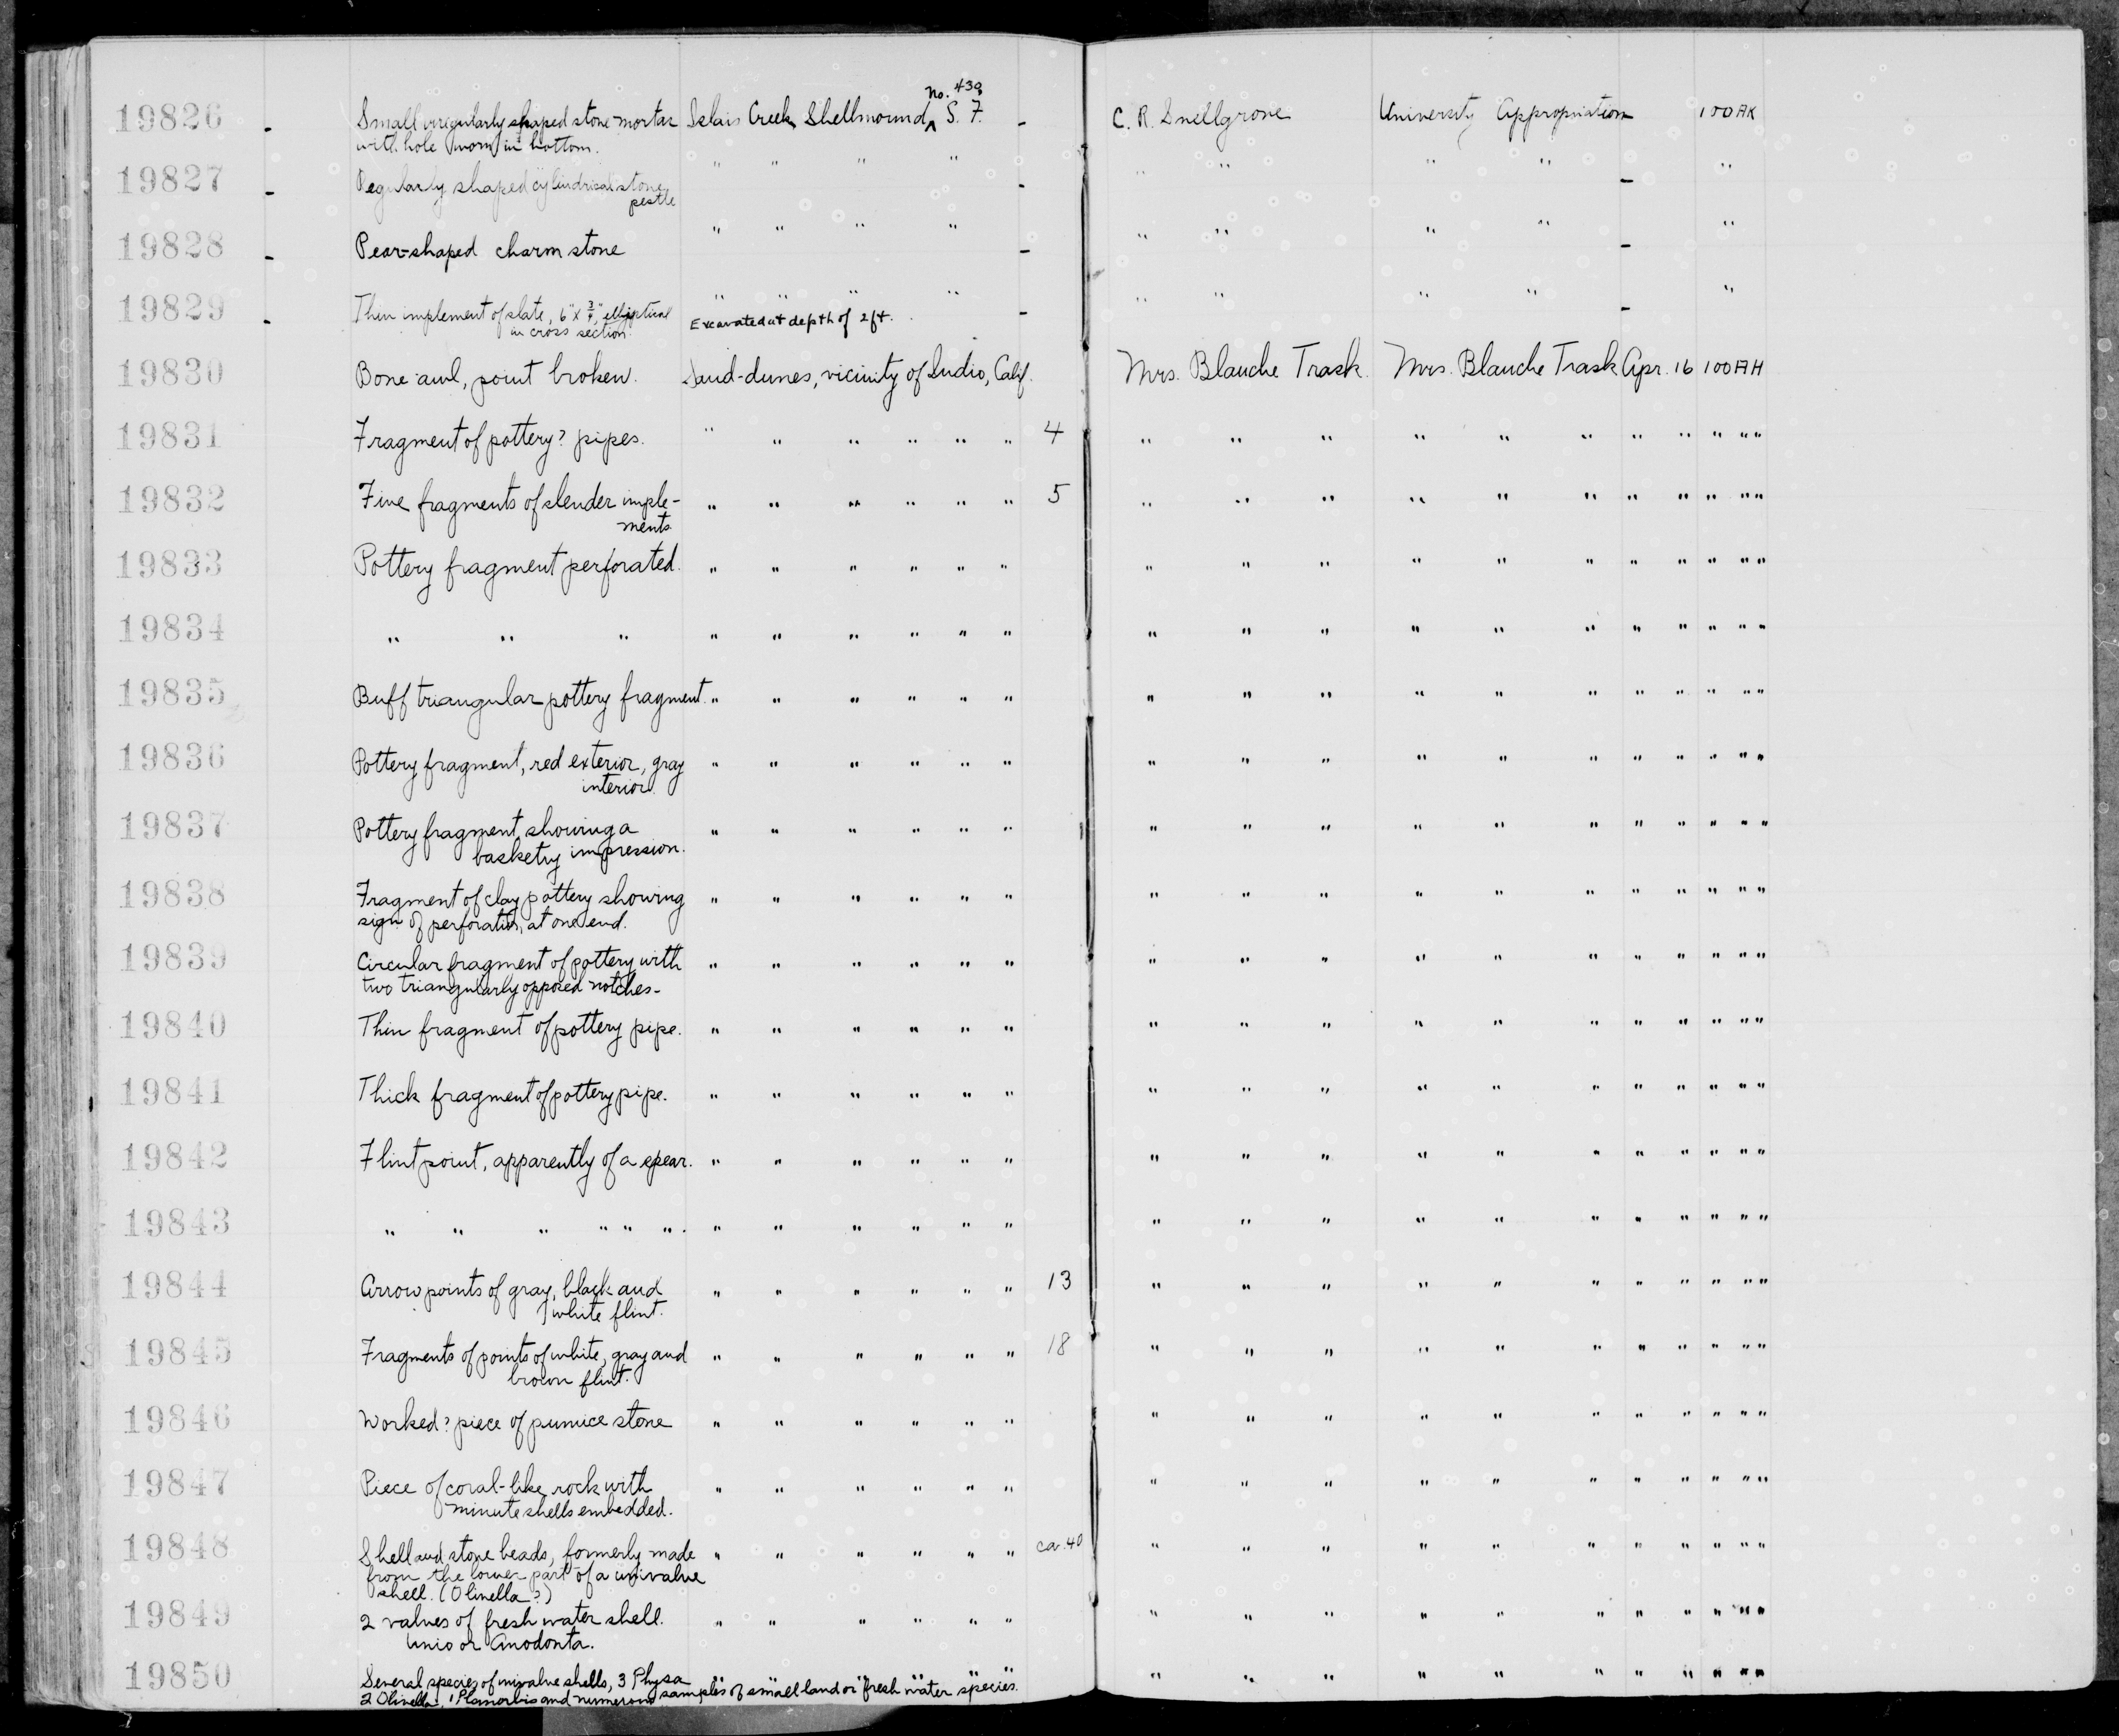 19826 - Small irregularly shaped stone mortar Islais Creek Shellmound, No. 439, S. F. - C. R. Snellgrove University Appropriation 100AK
with hole worn in bottom.
19827 - Regularly shaped cylindrical stone " " " " - " " " " - "
pestle
19828 - Pear-shaped charm stone " " " " - " " " " - "
19829 - Thin implement of slate, 6" x 3/4", elliptical " " " " - " " " " - "
in cross section. Excavated at depth of 2 ft.
19830 Bone awl, point broken. Sand-dunes, vicinity of Indio, Calif. Mrs. Blanche Trask Mrs. Blanche Trask Apr. 16 100AH
19831 Fragment of pottery? pipes. " " " " " " 4 " " " " " " " " " " "
19832 Five fragments of slender imple- " " " " " " 5 " " " " " " " " " " "
ments.
19833 Pottery fragment perforated. " " " " " " " " " " " " " " " " "
19834 " " " " " " " " " " " " " " " " " " " "
19835 Buff triangular pottery fragment. " " " " " " " " " " " " " " " " "
19836 Pottery fragment, red exterior, gray " " " " " " " " " " " " " " " " "
interior.
19837 Pottery fragment, showing a " " " " " " " " " " " " " " " " "
basketry impression.
19838 Fragment of clay pottery showing " " " " " " " " " " " " " " " " "
sign of perforation, at one end.
19839 Circular fragment of pottery with " " " " " " " " " " " " " " " " "
two triangularly opposed notches-
19840 Thin fragment of pottery pipe. " " " " " " " " " " " " " " " " "
19841 Thick fragment of pottery pipe. " " " " " " " " " " " " " " " " "
19842 Flint point, apparently of a spear. " " " " " " " " " " " " " " " " "
19843 " " " " " ". " " " " " " " " " " " " " " " " "
19844 Arrow points of gray, black and " " " " " " 13 " " " " " " " " " " "
white flint.
19845 Fragments of points of white, gray and " " " " " " 18 " " " " " " " " " " "
brown flint.
19846 Worked? piece of pumice stone " " " " " " " " " " " " " " " " "
19847 Piece of coral-like rock with " " " " " " " " " " " " " " " " "
minute shells embedded.
19848 Shell and stone beads, formerly made " " " " " " ca. 40 " " " " " " " " " " "
from the lower part of a univalve
shell. (Olivella?)
19849 2 valves of fresh water shell. " " " " " " " " " " " " " " " " "
Unio or Anodonta.
19850 Several species of univalve shells, 3 Physa " " " " " " " " " " " " " " " " "
2 Olivella, 1 Planorbis and numerous samples of small land or fresh water species.